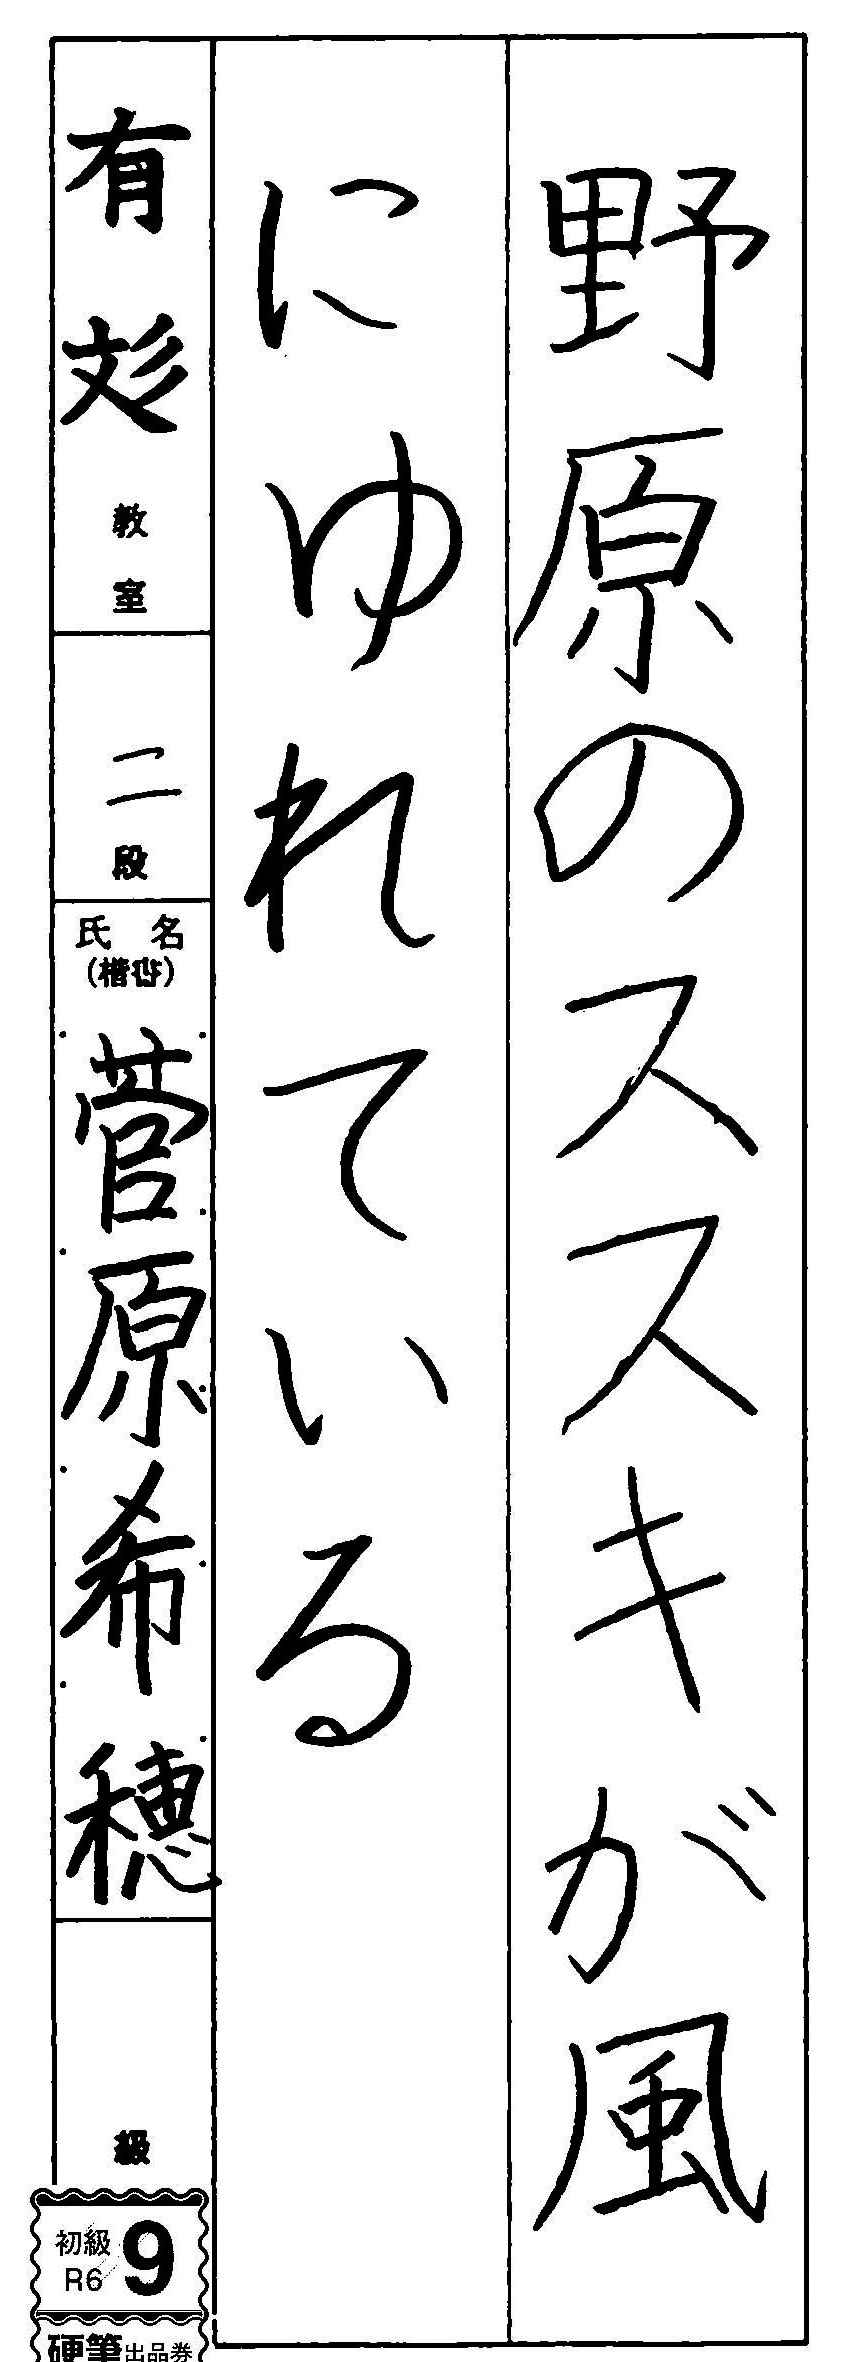 野原のススキが風
にゆれている
有彣教室
二段
氏名
(楷書)
菅原希穂
級
初級
R6
9
硬筆出品券